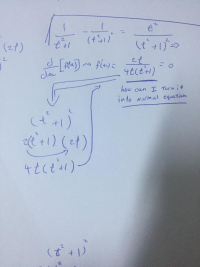 1/(t²+1) - 1/(t²+1)² = t²/(t²+1)² ⇒
(2t)
d/dx [f(x)] ⇒ f(x) = 2t/4t(t²+1) = 0
how can I turn it
into normal equation
(t²+1)²
2(t²+1)(2t)
4t(t²+1)
(t²+1)²